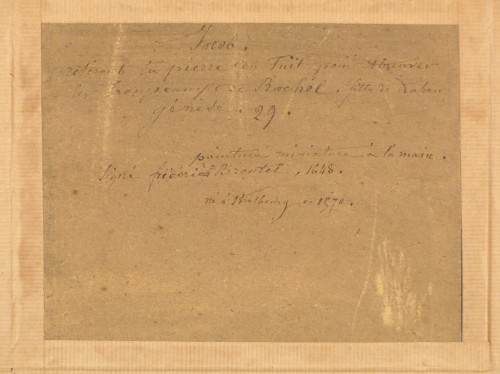 Jacob.
retirant la pierre du Puit pour Abreuver
les troupeaux de Rachel, fille de Laban
génèse. 29.
peinture miniature à la main.
Signé fréderic Brentel, 1648.
né à Strasbourg en 1570.